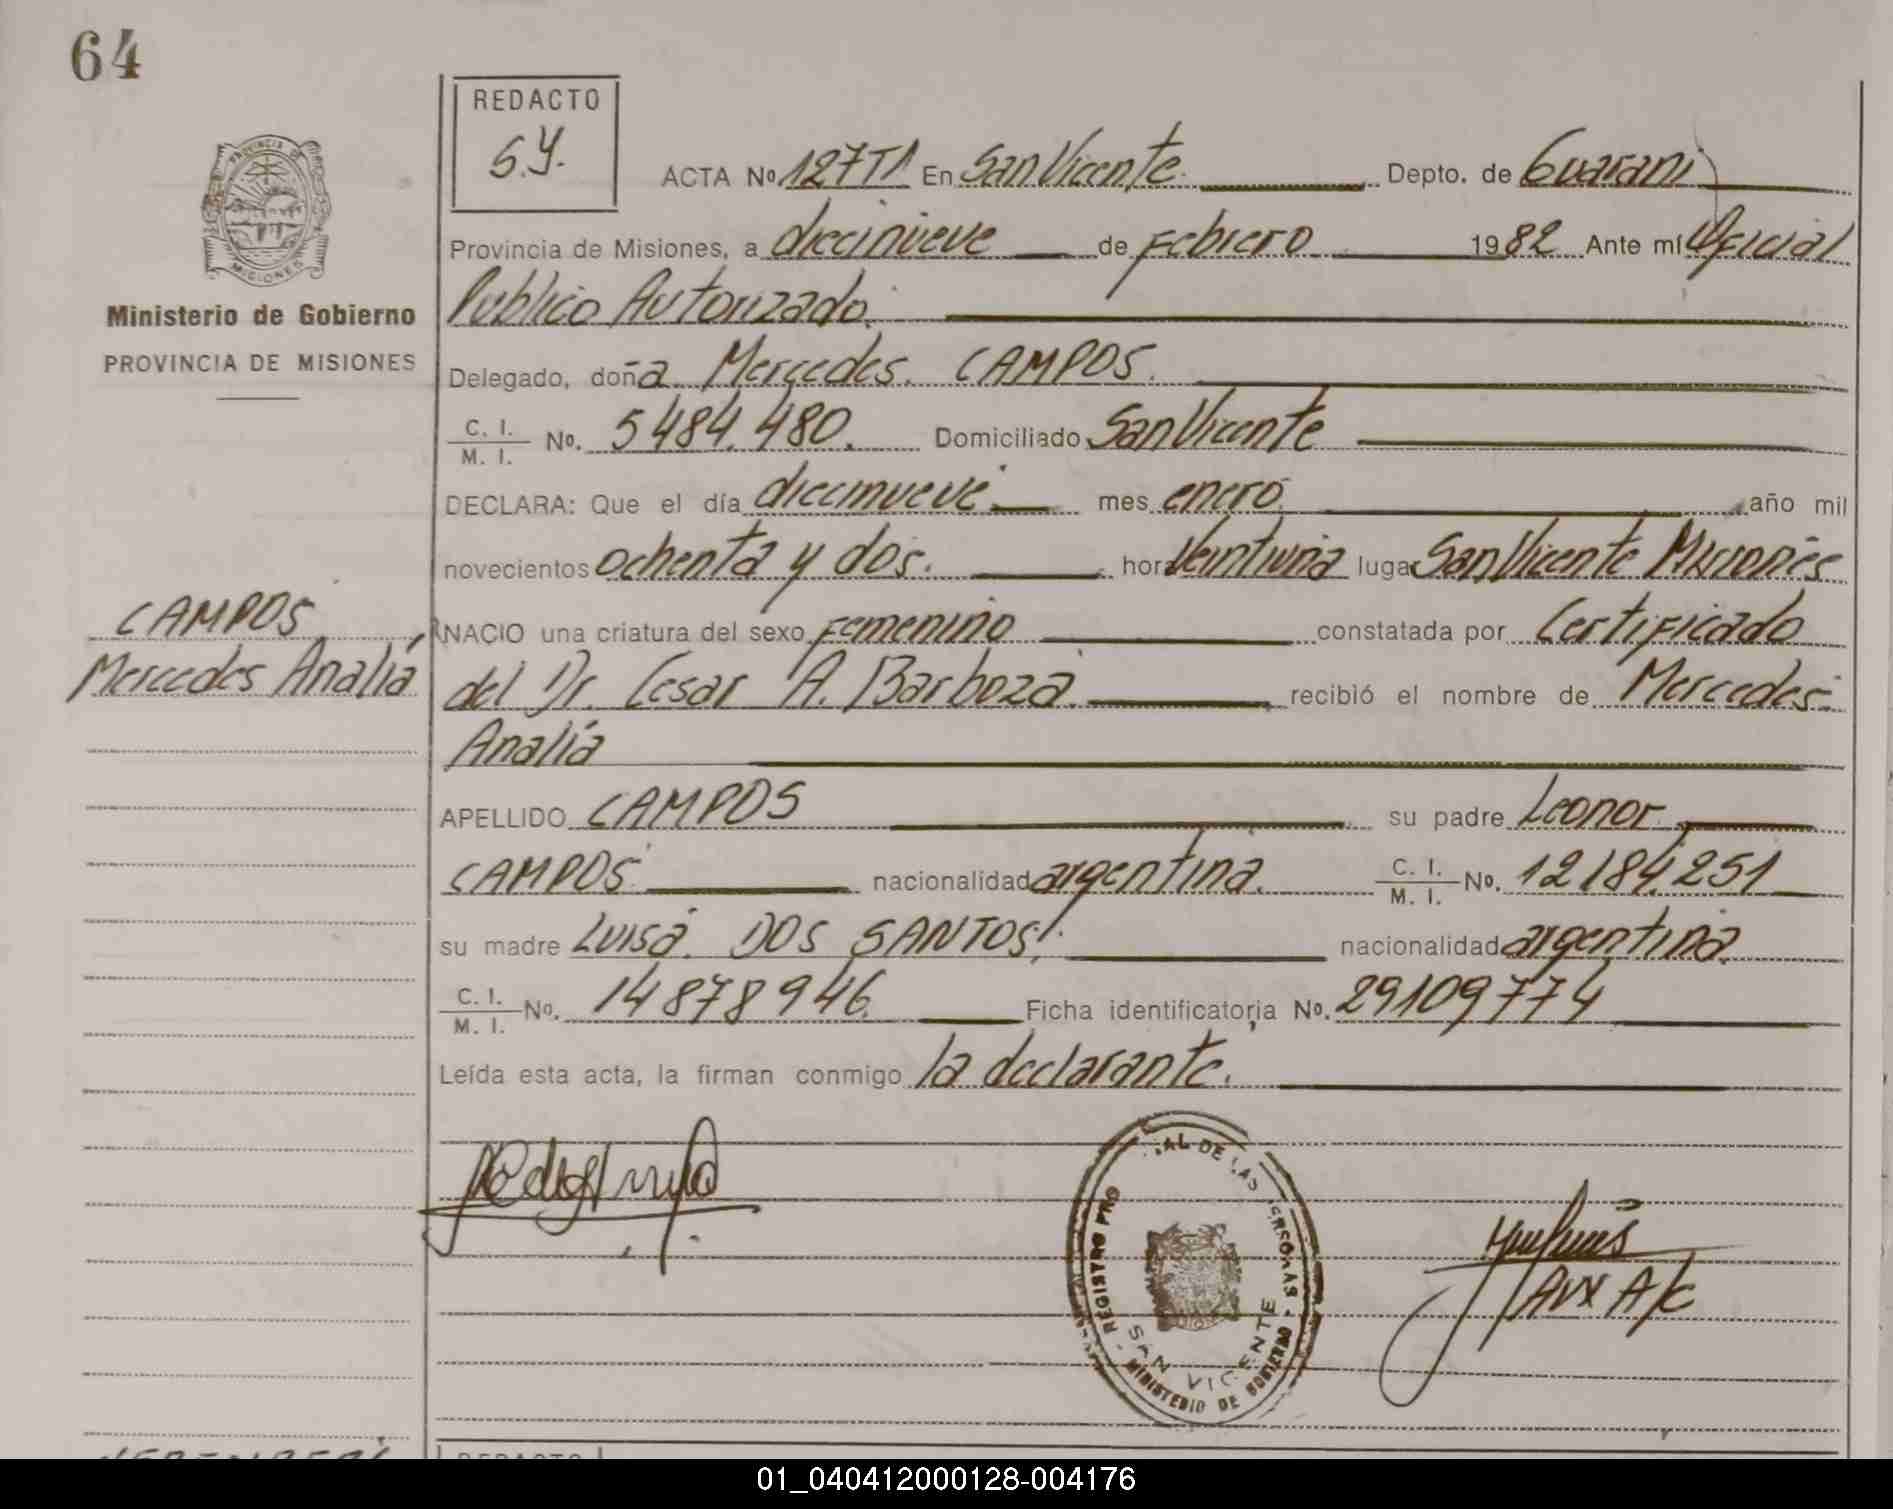 64
REDACTO
S.Y.
ACTA Nº 127T1 En San Vicente Depto. de Guaraní
Provincia de Misiones, a diecinueve de Febrero 1982 Ante mí Oficial
Publico Autorizado.
Delegado, doña Mercedes. CAMPOS.
C. I.
M. I. No. 5484.480. Domiciliado San Vicente
DECLARA: Que el día diecinueve mes enero año mil
novecientos ochenta y dos. hora veintiuna lugar San Vicente Misiones
NACIO una criatura del sexo Femenino constatada por Certificado
del Dr. Cesar A. Barboza recibió el nombre de Mercedes
Analía
APELLIDO CAMPOS su padre Leonor
CAMPOS nacionalidad argentina. C. I.
M. I. No. 12184.251
su madre Luisa. DOS SANTOS. nacionalidad argentina
C. I.
M. I. No. 14878946. Ficha identificatoria No. 29109774
Leída esta acta, la firman conmigo la declarante.
PROVINCIA DE
MISIONES
Ministerio de Gobierno
PROVINCIA DE MISIONES
CAMPOS
Mercedes Analía
REGISTRO PRO AL DE LAS PERSONAS
SAN VICENTE
- MINISTERIO DE GOBIERNO -
Aux A/C
REDACTO
01_040412000128-004176